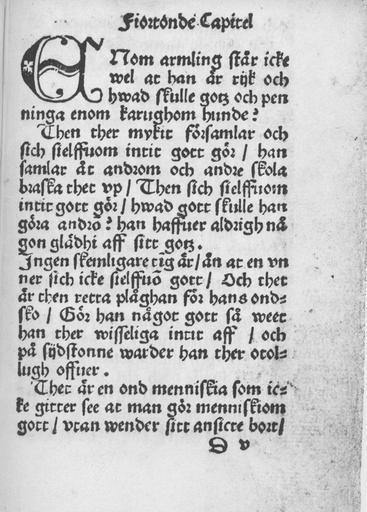 Fiortonde Capitel
ENom armling står icke
wel at han är rijk och
hwad skulle gotz och pen
ninga enom karughom hunde?
Then ther mykit församlar och
sich sielffuom intit gott gör / han
samlar åt androm och andre skola
braska thet vp / Then sich sielffuom
intit gott gör / hwad gott skulle han
göra andrō? han haffuer aldrigh nå
gon glädhi aff sitt gotz.
Ingen skemligare tīg är / än at en vn
ner sich icke sielffuō gott / Och thet
är then retta plåghan för hans ond=
sko / Gör han något gott så weet
han ther wisseliga intit aff / och
på sijdstonne warder han ther otol=
lugh offuer.
Thet är en ond menniskia som ic=
ke gitter see at man gör menniskiom
gott / vtan wender sitt ansicte bort /
D v